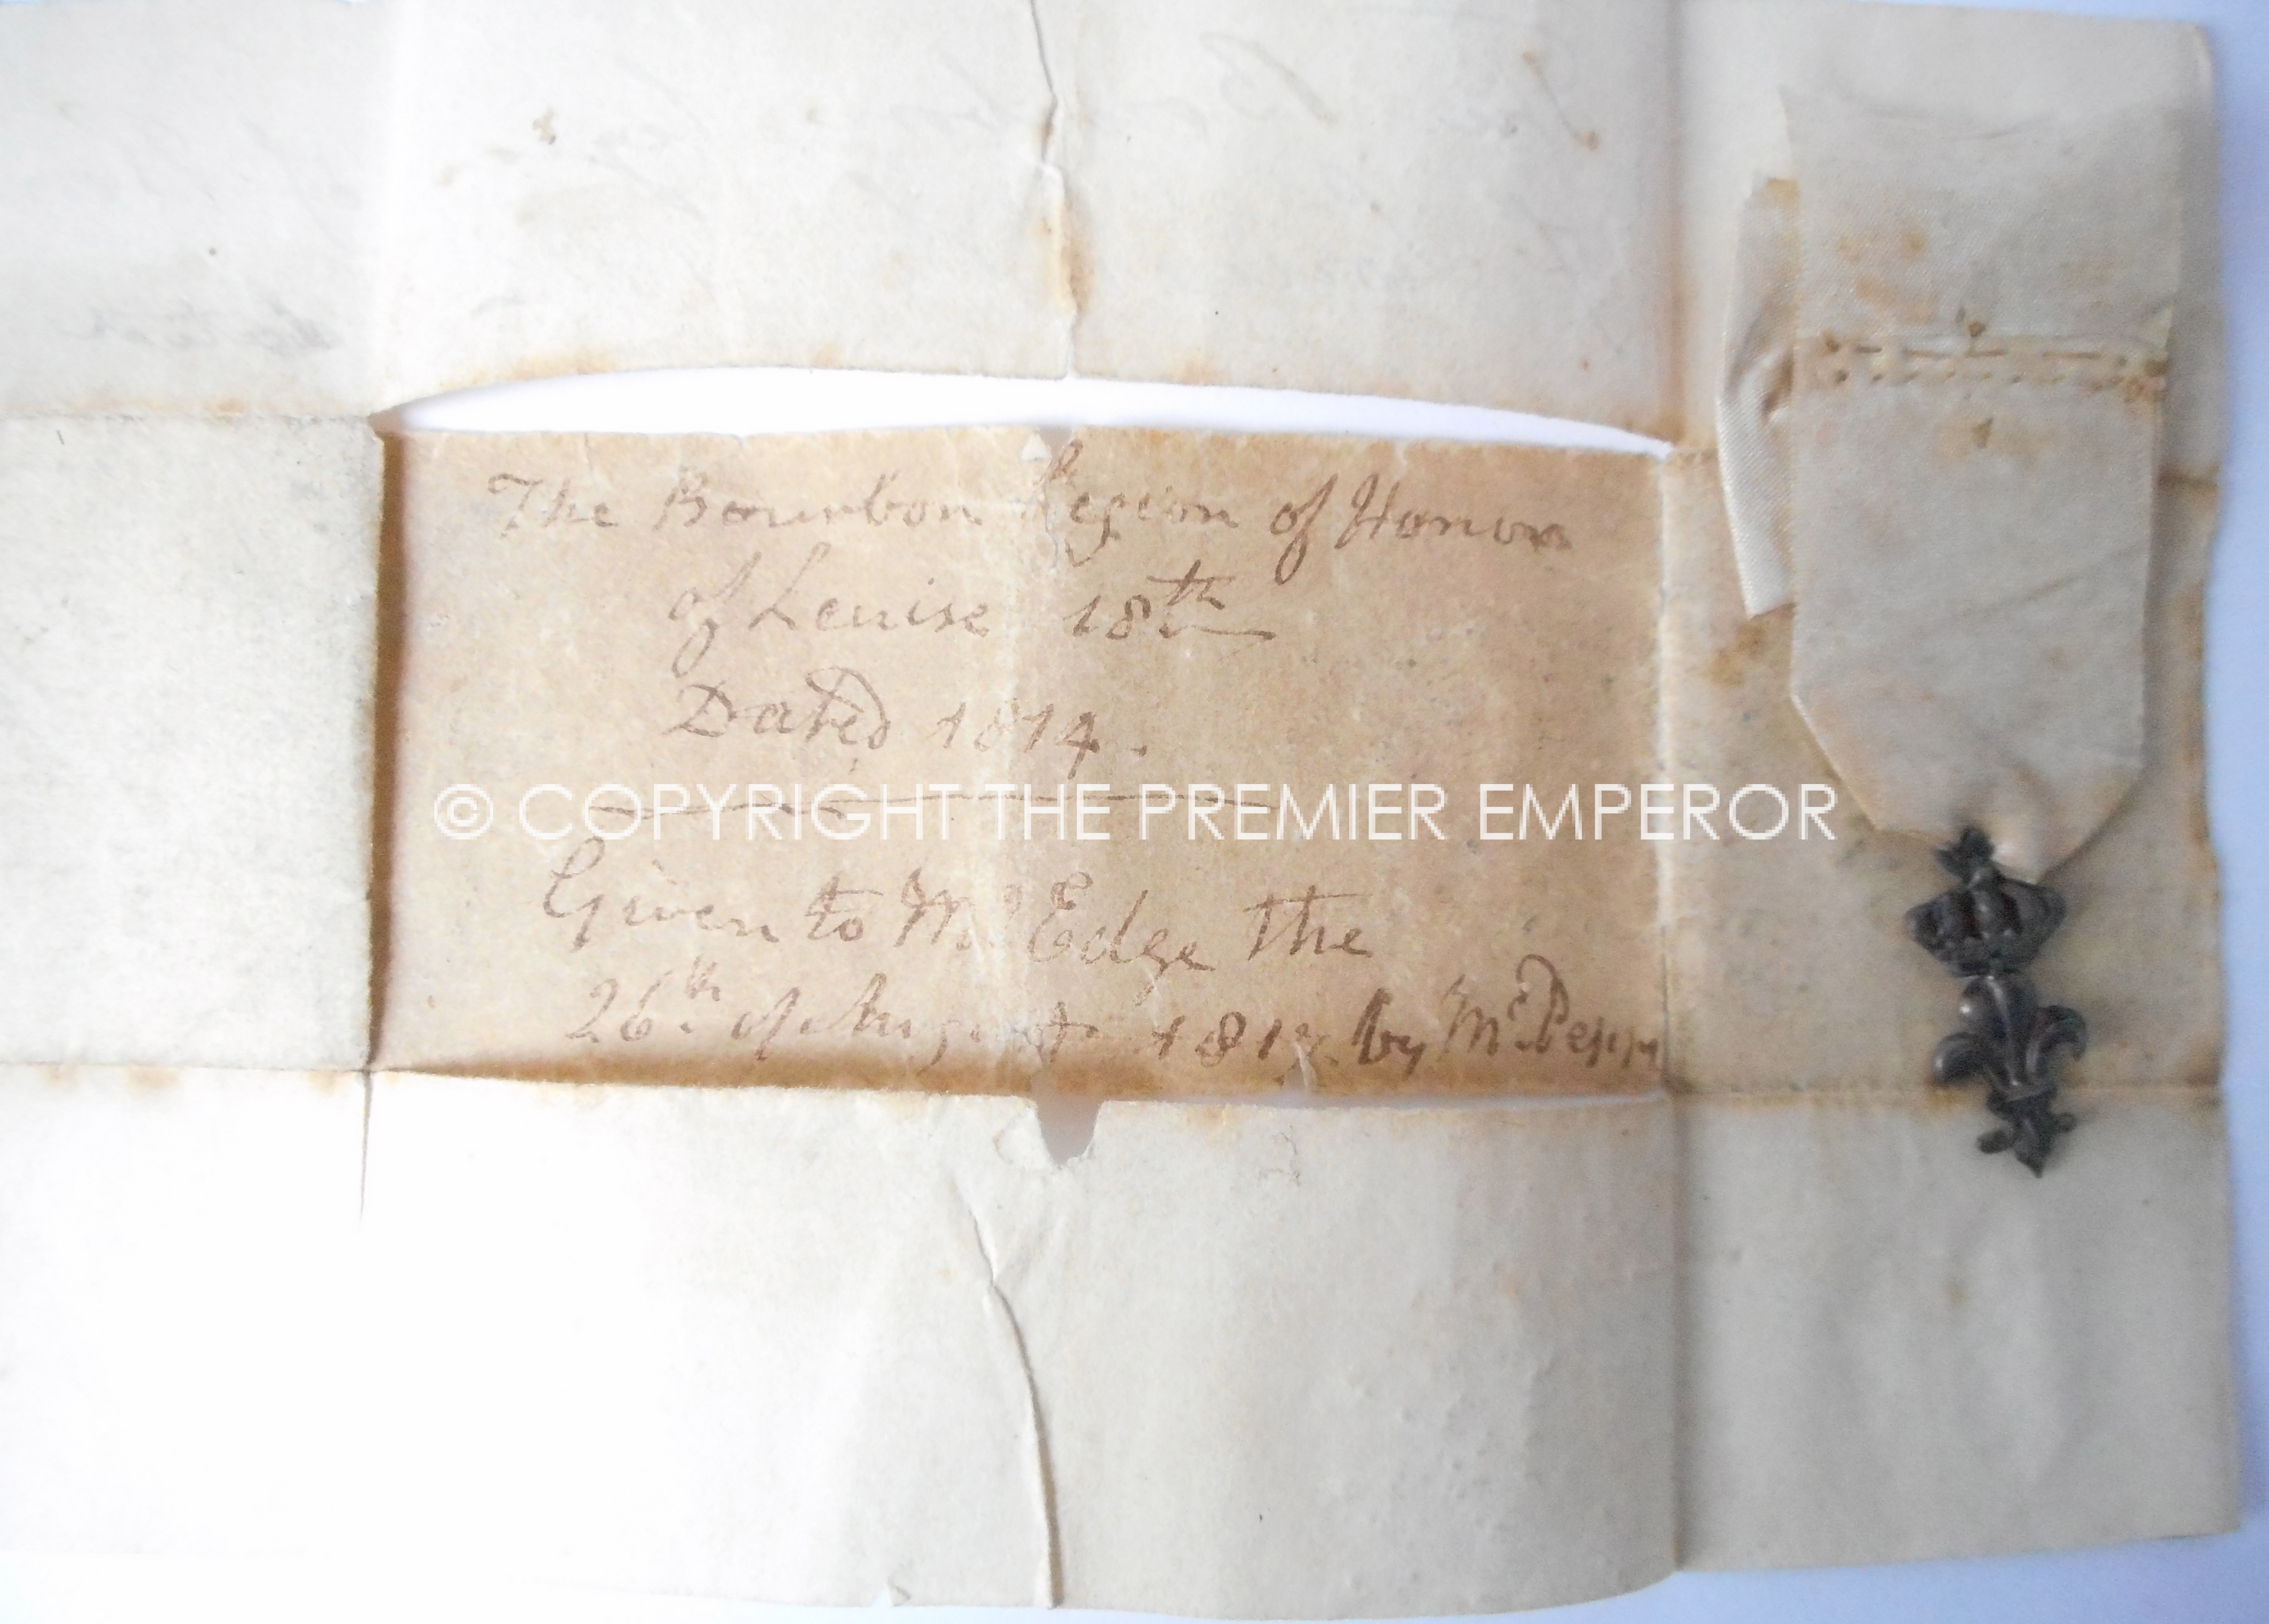 The Bourbon Legion of Honor
of Leuise 18th
Dated 1814.
© COPYRIGHT THE PREMIER EMPEROR
Given to Mr Edge the
26th of August by Mr